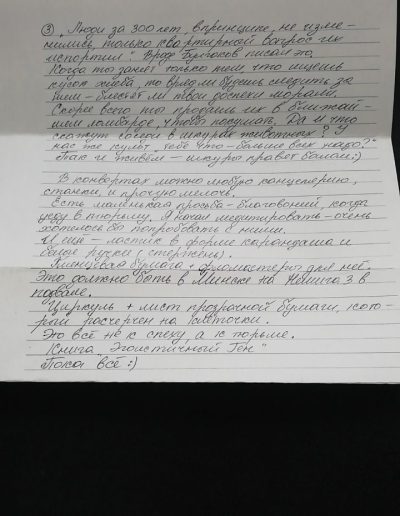 ③ „Люди за 300 лет, в принципе, не изме-
нились, только квартирный вопрос их
испортил". Вроде Булгаков писал это.
Когда ты занят только тем, что ищешь
кусок хлеба, то вряд ли будешь следить за
тем - блестят ли твои доспехи морали.
Скорее всего ты продашь их в ближай-
шем ломбарде, чтобы покушать. Да и что
скажут соседи в шкурах животных? „У
нас же культ, тебе что - больше всех надо?"
Так и живём - шкура правит балом :)
В конвертах можно любую канцелярию,
станки и прочую мелочь.
Есть маленькая просьба - благовоний, когда
уеду в тюрьму. Я начал медитировать - очень
хотелось бы попробовать с ними.
И ещё - ластик в форме карандаша и
белые ручки (стержены).
Глянцевая бумага + фломастеры для неё.
Это должно быть в Минске на Немига 3 в
подвале.
Циркуль + лист прозрачной бумаги, кото-
рый расчерчен на клеточки.
Это всё не к спеху, а к тюрьме.
Книга „Эгоистичный Ген"
Пока всё :)